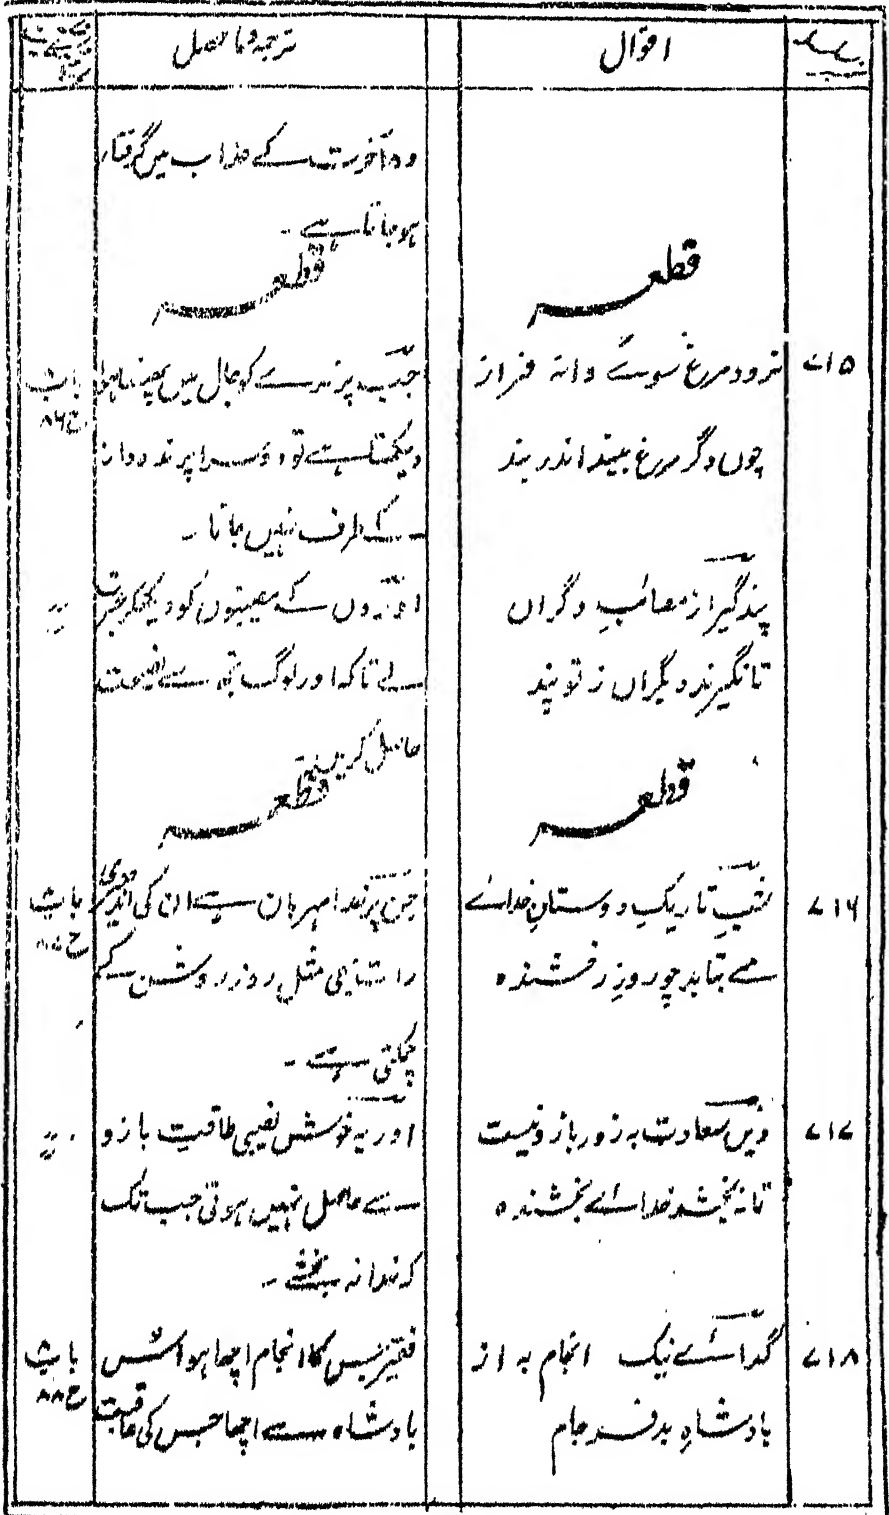 اقوال
ترجمہ و ماحصل
وہ آخرت کے عذاب میں گرفتار
ہوجاتا ہے۔
قطعہ
قطعہ
۷۱۵
نرود مرغ سوئے دانہ فراز
چوں دگر مرغ بیند اندر بند
جب پرندے کو جال میں پھنسا ہوا
دیکھتا ہے تو دوسرا پرندہ دانہ
کے طرف نہیں جاتا۔
باب ۸
ح ۸۶
پند گیر از مصائب دگراں
تا نگیرند دیگراں ز تو پند
اوروں کے مصیبتوں کو دیکھکر عبرت
لے تاکہ اور لوگ تجھ سے نصیحت
حاصل کریں
قطعہ
قطعہ
۷۱۶
شب تاریک دوستان خدائے
مے بتابد چو روز رخشندہ
جن پر خدا مہربان ہے ان کی اندھیری
رات بھی مثل روز روشن کے
چمکتی ہے۔
باب ۸
۷۱۷
وزیں سعادت بہ زور بازو نیست
تا نہ بخشد خدائے بخشندہ
اور یہ خوش نصیبی طاقت بازو
سے حاصل نہیں ہوتی جب تک
کہ خدا نہ بخشے۔
۷۱۸
گدائے نیک انجام بہ از
بادشاہ بدفرجام
فقیر جس کا انجام اچھا ہو اس
بادشاہ سے اچھا جس کی عاقبت
باب ۸
ح ۸۸